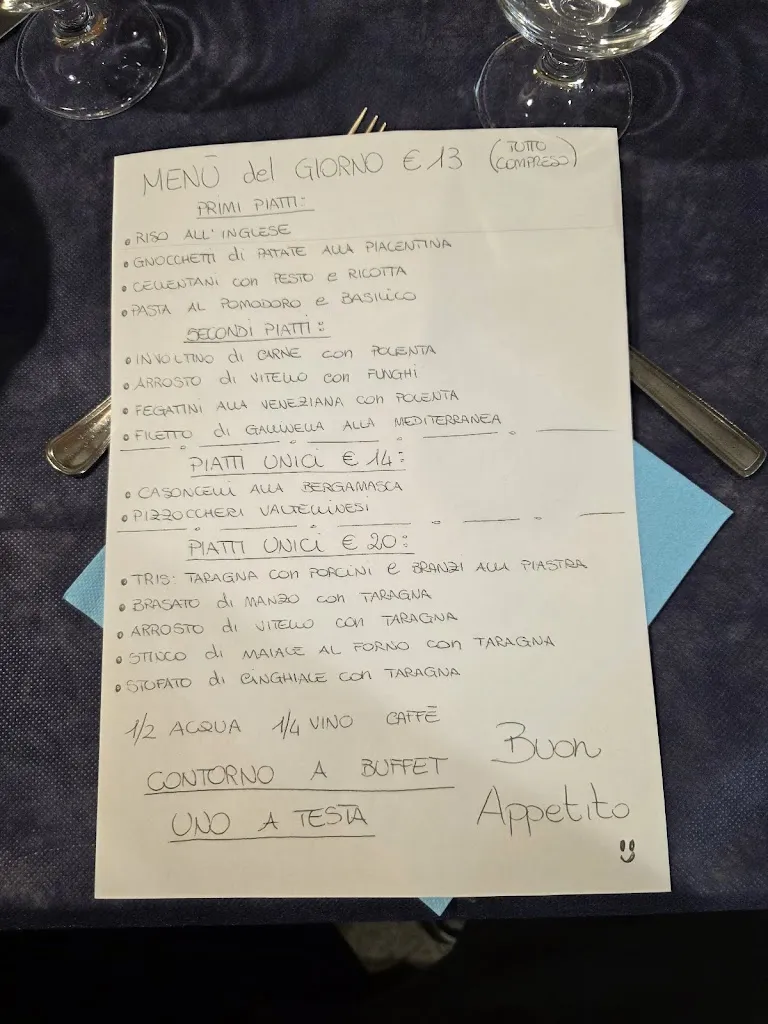 MENÙ del GIORNO € 13 (TUTTO COMPRESO)
PRIMI PIATTI:
• RISO ALL'INGLESE
• GNOCCHETTI di PATATE ALLA PIACENTINA
• CELLENTANI con PESTO e RICOTTA
• PASTA AL POMODORO e BASILICO
SECONDI PIATTI:
• INVOLTINO di CARNE con POLENTA
• ARROSTO di VITELLO con FUNGHI
• FEGATINI ALLA VENEZIANA con POLENTA
• FILETTO di GALLINELLA ALLA MEDITERRANEA
PIATTI UNICI € 14:
• CASONCELLI ALLA BERGAMASCA
• PIZZOCCHERI VALTELLINESI
PIATTI UNICI € 20:
• TRIS: TARAGNA con PORCINI e BRANZI ALLA PIASTRA
• BRASATO di MANZO con TARAGNA
• ARROSTO di VITELLO con TARAGNA
• STINCO di MAIALE AL FORNO con TARAGNA
• STUFATO di CINGHIALE con TARAGNA
1/2 ACQUA 1/4 VINO CAFFÈ
CONTORNO A BUFFET
UNO A TESTA
Buon
Appetito